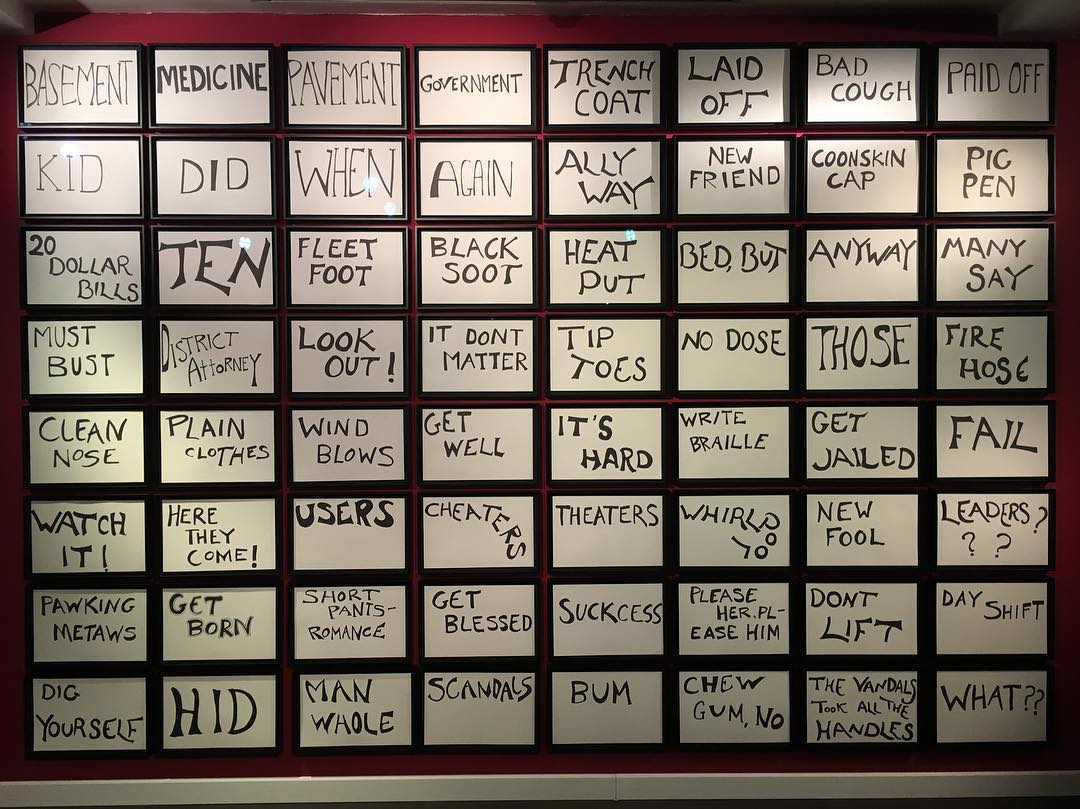 BASEMENT
MEDICINE
PAVEMENT
GOVERNMENT
TRENCH
COAT
LAID
OFF
BAD
COUGH
PAID OFF
KID
DID
WHEN
AGAIN
ALLY
WAY
NEW
FRIEND
COONSKIN
CAP
PIG
PEN
20
DOLLAR
BILLS
TEN
FLEET
FOOT
BLACK
SOOT
HEAT
PUT
BED, BUT
ANYWAY
MANY
SAY
MUST
BUST
DISTRICT
ATTORNEY
LOOK
OUT!
IT DONT
MATTER
TIP
TOES
NO DOSE
THOSE
FIRE
HOSE
CLEAN
NOSE
PLAIN
CLOTHES
WIND
BLOWS
GET
WELL
IT'S
HARD
WRITE
BRAILLE
GET
JAILED
FAIL
WATCH
IT!
HERE
THEY
COME!
USERS
CHEATERS
THEATERS
WHIRLPOOL
NEW
FOOL
LEADERS?
? ?
PAWKING
METAWS
GET
BORN
SHORT
PANTS-
ROMANCE
GET
BLESSED
SUCKCESS
PLEASE
HER, PL-
EASE HIM
DONT
LIFT
DAY SHIFT
DIG
YOURSELF
HID
MAN
WHOLE
SCANDALS
BUM
CHEW
GUM, NO
THE VANDALS
TOOK ALL THE
HANDLES
WHAT??